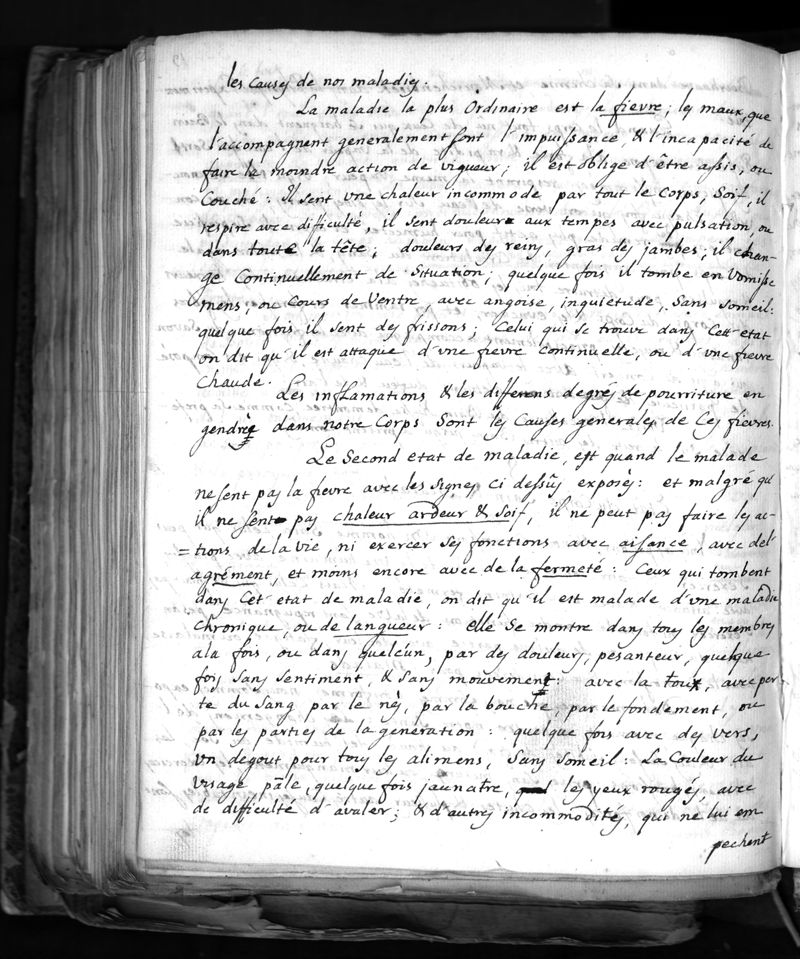 les causes de nos maladies.
La maladie la plus Ordinaire est la fievre; les maux, que
l'accompagnent generalement sont l'impuissance, & l'incapacité de
faire le moindre action de vigueur; il est oblige d'être assis, ou
Couché: Il sent vne chaleur incommode par tout le Corps, Soif, il
respire avec difficulté, il sent douleurs aux tempes avec pulsation, ou
dans toute la tête; douleurs des reins, gras des jambes; il chan-
ge Continuellement de Situation; quelque fois il tombe en Vomisse
mens, ou Cours de Ventre, avec angoise, inquietude, Sans Someil:
quelque fois il sent des frissons; Celui qui se trouve dans Cett etat
on dit qu'il est attaque d'vne fievre Continuelle, ou d'vne fievre
Chaude.
Les inflamations & les differens degrés de pourriture en
gendrée dans notre Corps Sont les Causes generales de Ces fievres.
Le Second etat de maladie, est quand le malade
ne sent pas la fievre avec les Signes Ci dessûs exposés: et malgré qu'
il ne sent pas chaleur ardeur & Soif, il ne peut pas faire les ac-
=tions de la vie, ni exercer Ses fonctions avec aisance, avec del'
agrément, et moins encore avec de la fermeté: Ceux qui tombent
dans Cet etat de maladie, on dit qu'il est malade d'vne maladie
Chronique, ou de langueur: elle Se montre dans tous les membres
ala fois, ou dans quelcun, par des douleurs, pesanteur, quelque
fois Sans Sentiment, & Sans mouvement: avec la toux, avec per
te du Sang par le nès, par la bouche, par le fondement, ou
par les parties de la generation: quelque fois avec des vers,
vn degout pour tous les alimens, Sans Someil: La Couleur du
visage pâle, quelque fois jaunatre, les yeux rougés, avec
de difficulté d'avaler; & d'autres incommodités, qui ne lui em
pechent